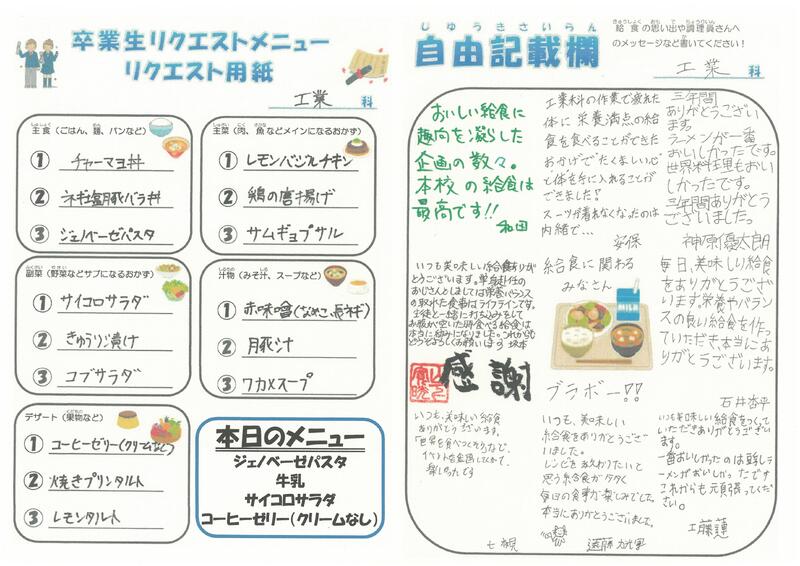 卒業生リクエストメニュー
リクエスト用紙
工業 科
主食（ごはん、麺、パンなど）
① チャーマヨ丼
② ネギ塩豚バラ丼
③ ジェノベーゼパスタ
主菜（肉、魚などメインになるおかず）
① レモンバジルチキン
② 鶏の唐揚げ
③ サムギョプサル
副菜（野菜などサブになるおかず）
① サイコロサラダ
② きゅうり漬け
③ コブサラダ
汁物（みそ汁、スープなど）
① 赤味噌(なめこ、長ネギ)
② 豚汁
③ ワカメスープ
デザート（果物など）
① コーヒーゼリー(クリームなし)
② 焼きプリンタルト
③ レモンタルト
本日のメニュー
ジェノベーゼパスタ
牛乳
サイコロサラダ
コーヒーゼリー（クリームなし）
じゆうきさいらん
自由記載欄
給食の思い出や調理員さんへ
のメッセージなど書いてください！
工業 科
おいしい給食に
趣向を凝らした
企画の数々。
本校の給食は
最高です!!
和田
工業科の作業で疲れた
体に栄養満点の給
食を食べることができた
おかげでたくましい心
と体を手に入れることが
できました！
スーツが着れなくなったのは
内緒で…
安保
三年間
ありがとうござい
ます。
ラーメンが一番
おいしかったです。
世界料理もおい
しかったです。
三年間ありがとう
ございました。
神原優太朗
いつも美味しい給食ありが
とうございます。単身赴任の
おじさんとしましては栄養バランス
の取れた食事はライフラインです。
生徒と一緒に打ち込みをして
お腹が空いた時食べる給食は
本当に励みになりました。これからも
どうぞよろしくお願いします 坂本
給食に関わる
みなさん
ブラボー!!
毎日、美味しい給食
をありがとうござい
ます。栄養やバランス
の良い給食を作っ
ていただき本当にあ
りがとうございます。
石井杏平
感謝
いつも、美味しい給食
ありがとうございます。
「世界を食べつくそう」など、
イベントを企画してくれて、
楽しかったです
いつも、美味しい
給食をありがとうござ
いました。
レシピを教わりたいと
思う給食が多く
毎日の食事が楽しみでした。
本当にありがとうございました。
遠藤
いつも美味しい給食をつくって
いただきありがとうござい
ます。
一番おいしかったのは豚骨ラ
ーメンがおいしかったです
これからも元気張ってくだ
さい。
工藤蓮